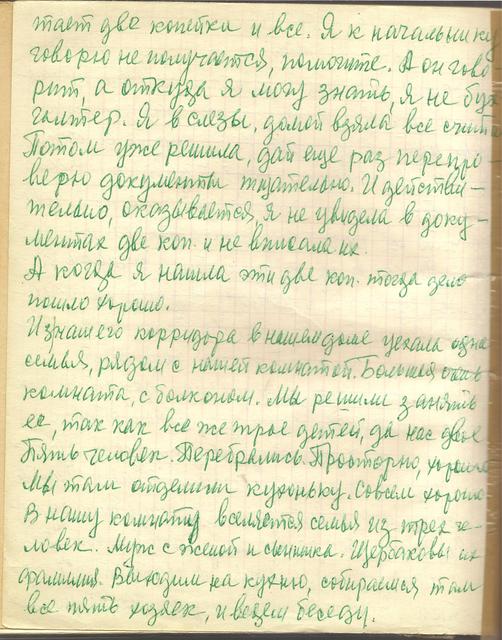 тает две копейки и все. Я к начальнику
говорю не получается, помогите. А он гово
рит, а откуда я могу знать, я не бух
галтер. Я в слезы, домой взяла все счит
Потом уже решила, дай еще раз перепро
верю документы тщательно. И действи-
тельно, оказывается, я не увидела в доку-
ментах две коп. и не вписала их.
А когда я нашла эти две коп. тогда дело
пошло хорошо.
Из нашего корридора в нашем доме уехала одна
семья, рядом с нашей комнатой. Большая очень
комната, с болконом. Мы решили занять
ее, так как все же трое детей, да нас двое
Пять человек. Перебрались. Просторно, хорошо
Мы там отделили кухоньку. Совсем хорошо
В нашу комнату вселяется семья из трех че-
ловек. Муж с женой и сынишка. Щербаковы их
фамилия. Выходим на кухню, собираемся там
все пять хозяек, и ведем беседу.